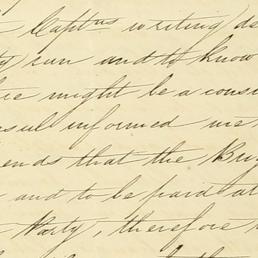 Captns writing de
run and to know
might be a consi
sul informed me
ends that the Bri
and to be paid at
Party, therefore